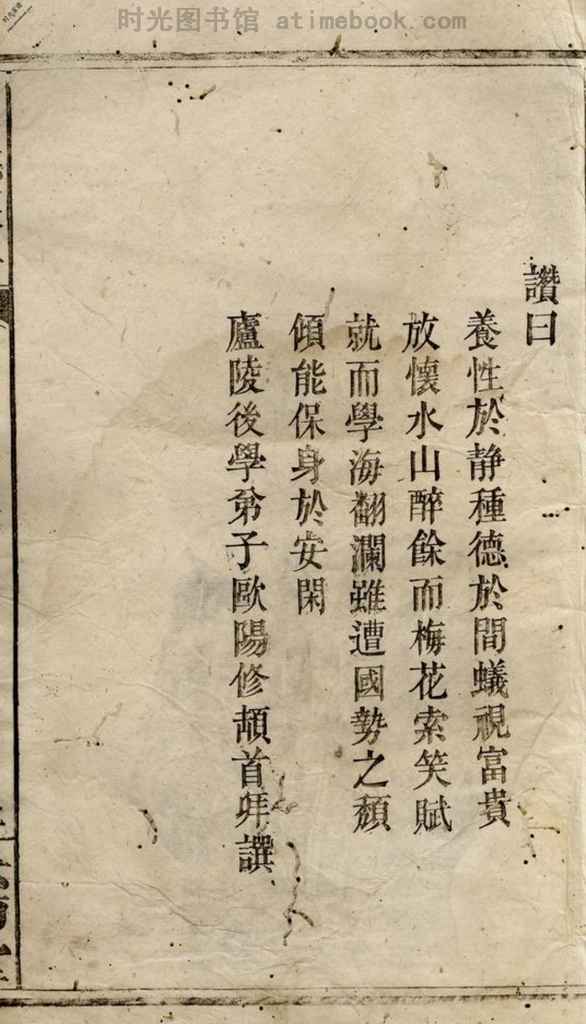 时光图书馆 atimebook.com
讚曰
養性於靜種德於間蟻視富貴
放懷水山醉餘而梅花索笑賦
就而學海翻瀾雖遭國勢之頹
傾能保身於安閑
廬陵後學弟子歐陽修頓首拜譔